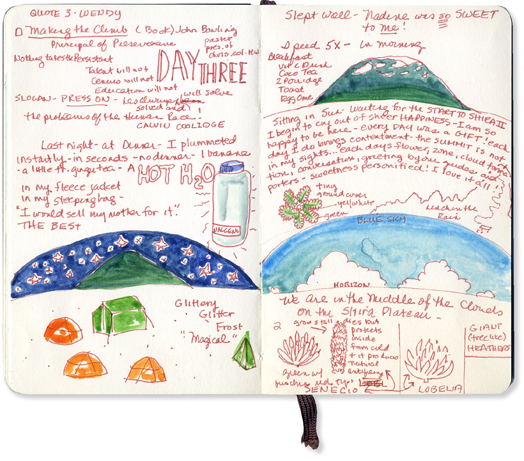 QUOTE 3 • WENDY
Making the Climb (Book) John Bowling
Principal of Perseverance
pastor
pres. of
Nothing takes the Persistant
Talent will not
Genius will not
Education will not
DAY THREE
SLOGAN - PRESS ON - has always
will solve
solved and
the problems of the Human Race.
CALVIN COOLIDGE
Last night - at Dinner - I plummeted
instantly - in seconds - no dinner - 1 banana
a little
HOT H2O
in my fleece jacket
in my sleeping bag -
"I would sell my mother for it."
THE BEST
NALGENE
Glittery
Glitter
Frost
"Magical"
Slept well - Nadine was so SWEET
to me!
Speed 5X - in morning
Breakfast
Coco Tea
2 Porridge
Toast
Egg One
Sitting in Sun - Waiting for the START TO SHIRA II
I begin to cry out of sheer HAPPINESS - I am so
happy to be here - every DAY was a GIFT! each
day I do brings contentment - the SUMMIT is not
in my sights... each days flower, zone, cloud forma-
tion, conversation, greeting by our guides and
porters - sweetness personified! I love it all!
tiny
ground cover
yellwhite
green
BLUE SKY
HORIZON
We are in the Middle of the Clouds
on the Shira Plateau -
2
grows tall & dies but
protects
inside
from cold
+ it produces
natural
antifreeze
green w/
SENECIO
LOBELIA
GIANT
(treelike)
HEATHERS